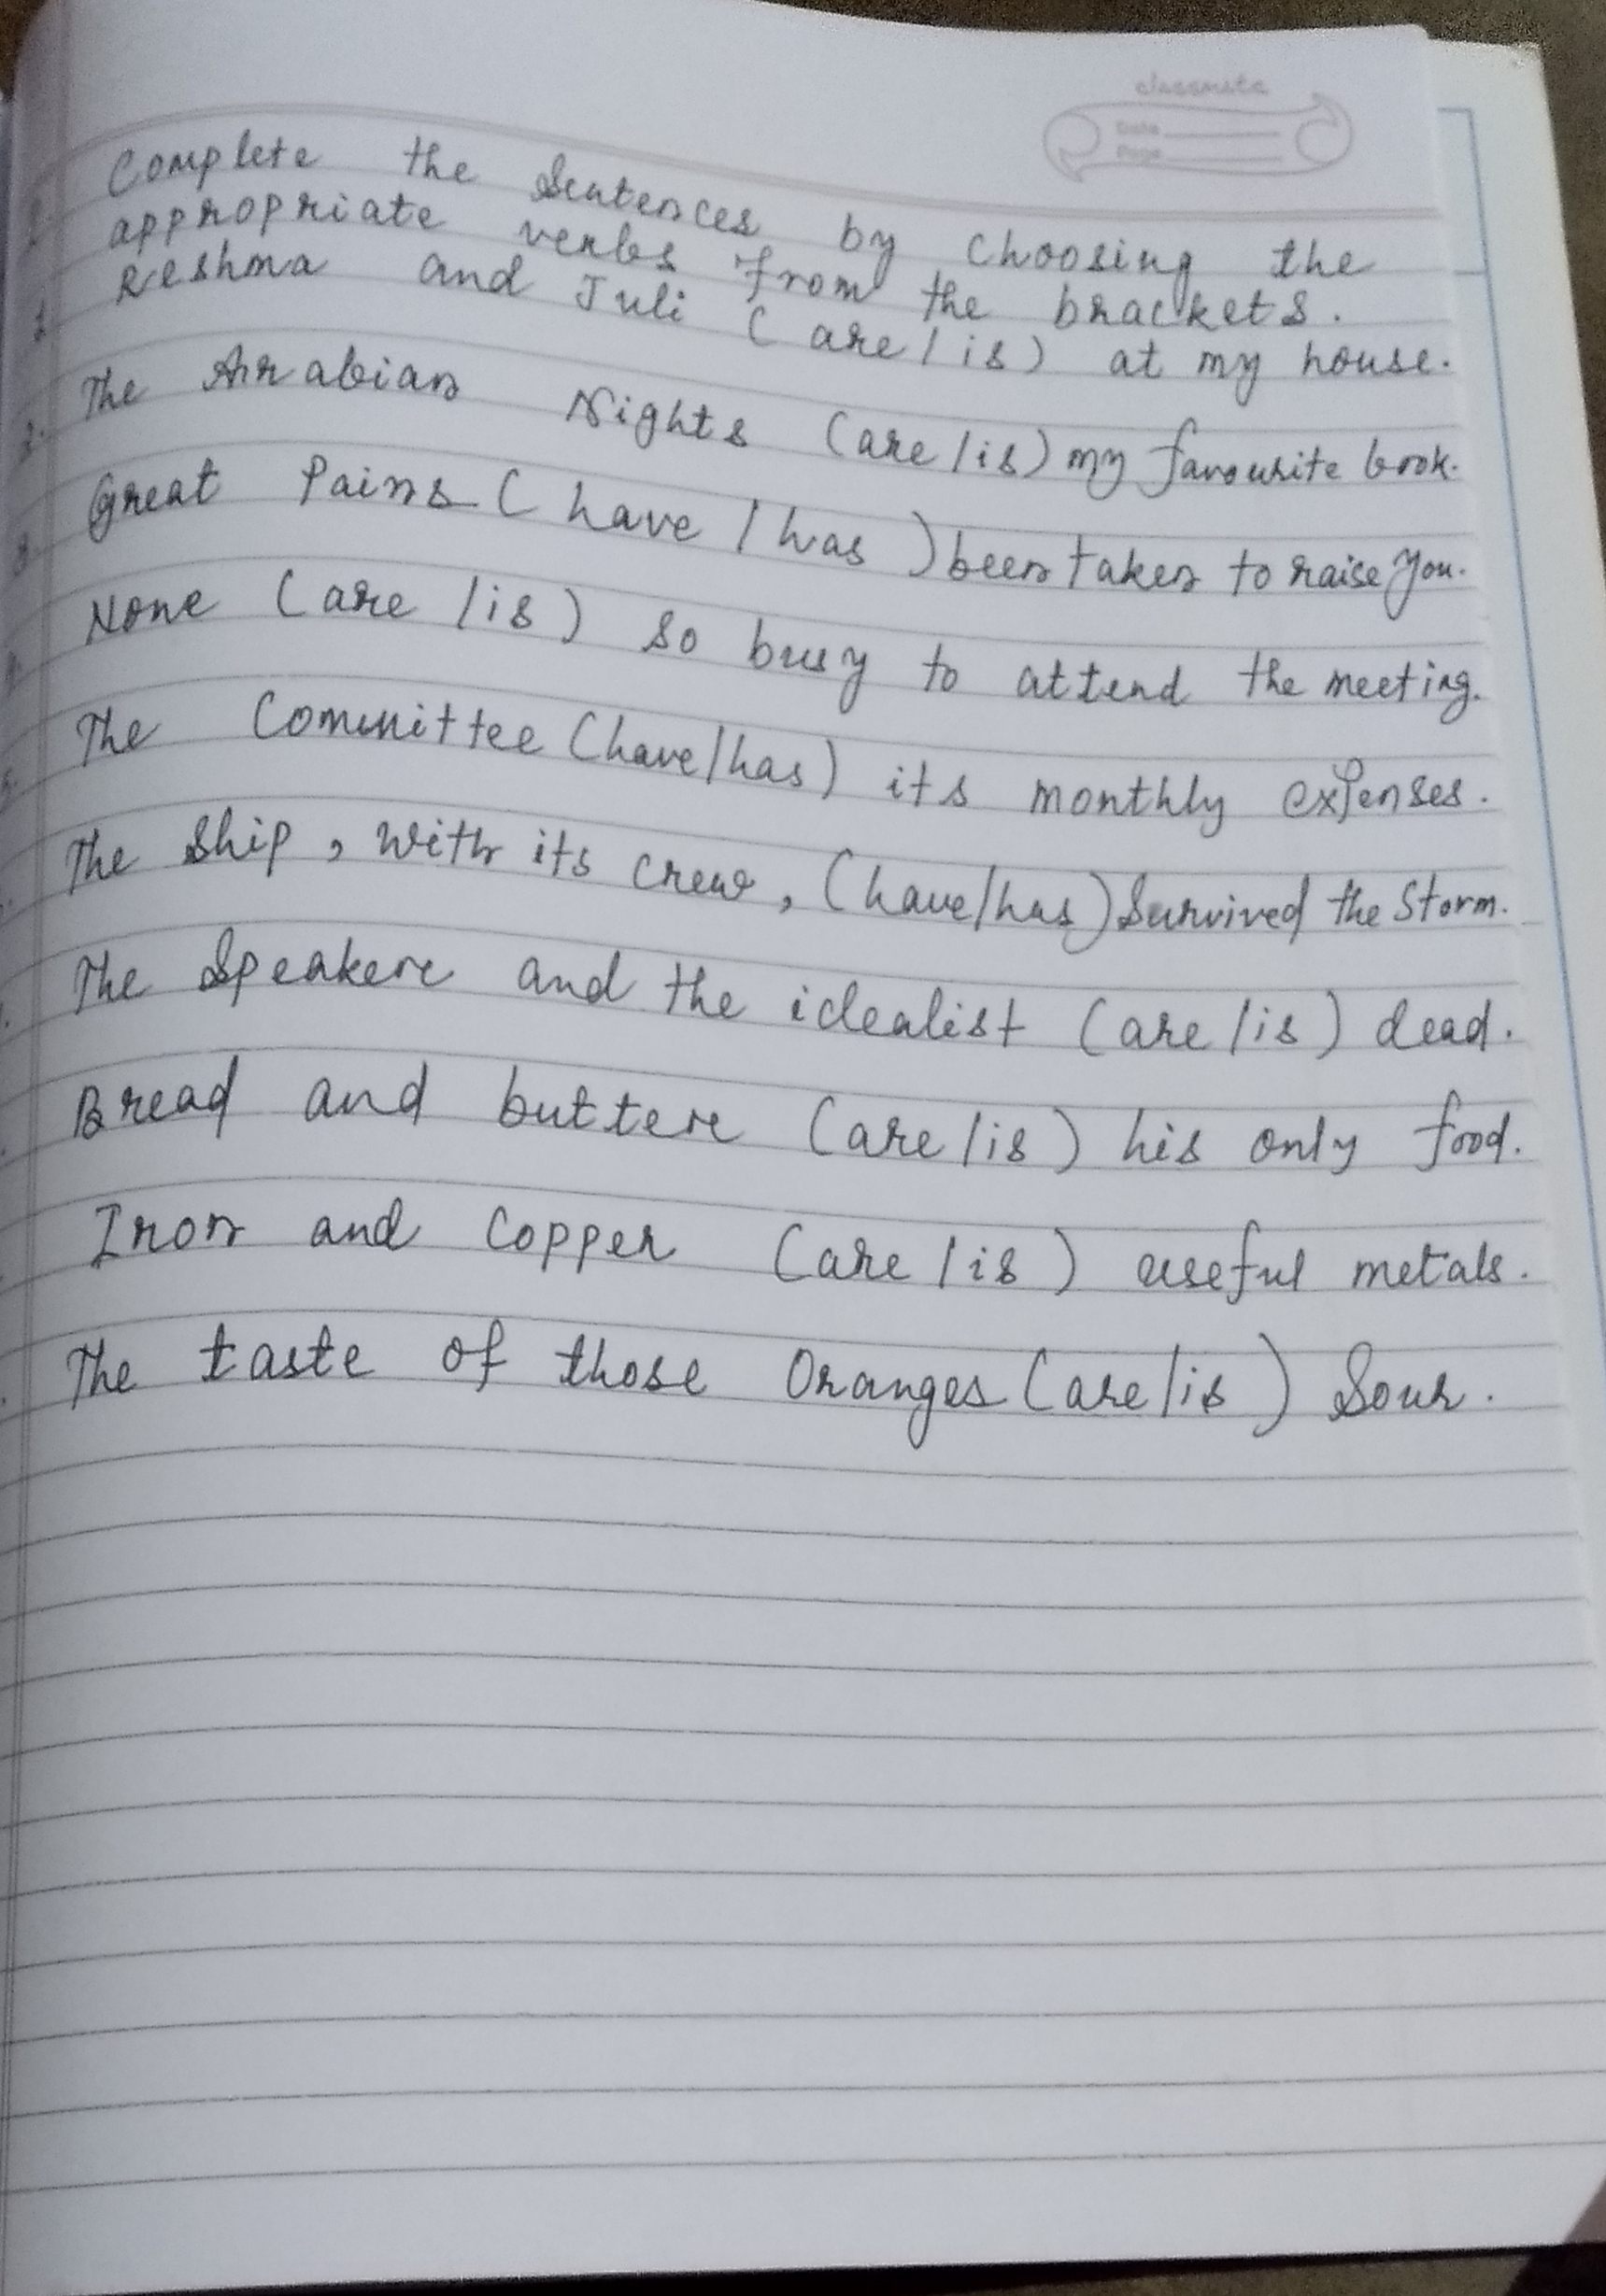 classmate
Date
Page
Complete the Sentences by Choosing the
appropriate verbs from the brackets.
1. Reshma and Juli (are/is) at my house.
2. The Arabian Nights (are/is) my favourite book.
3. Great Pains (have/has) been taken to raise you.
None (are/is) so busy to attend the meeting.
5. The Committee (have/has) its monthly expenses.
The Ship, with its crew, (have/has) Survived the Storm.
The Speaker and the idealist (are/is) dead.
Bread and butter (are/is) his only food.
Iron and Copper (are/is) useful metals.
The taste of those Oranges (are/is) Sour.